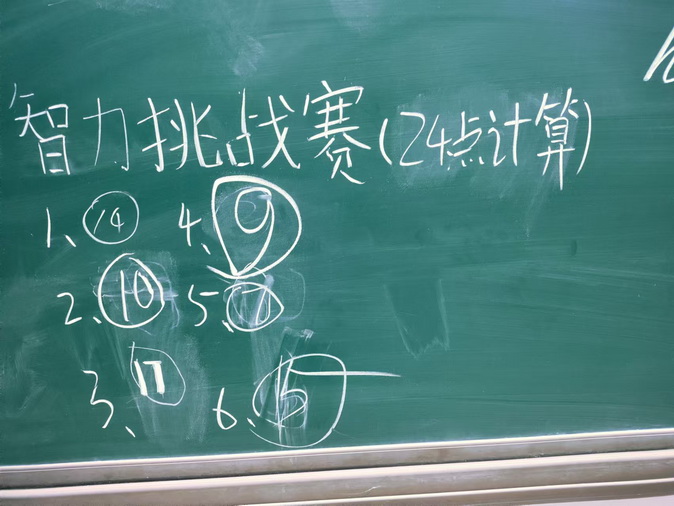 智力挑战赛(24点计算)
1、14 4、9
2、10 5、7
3、17 6、15